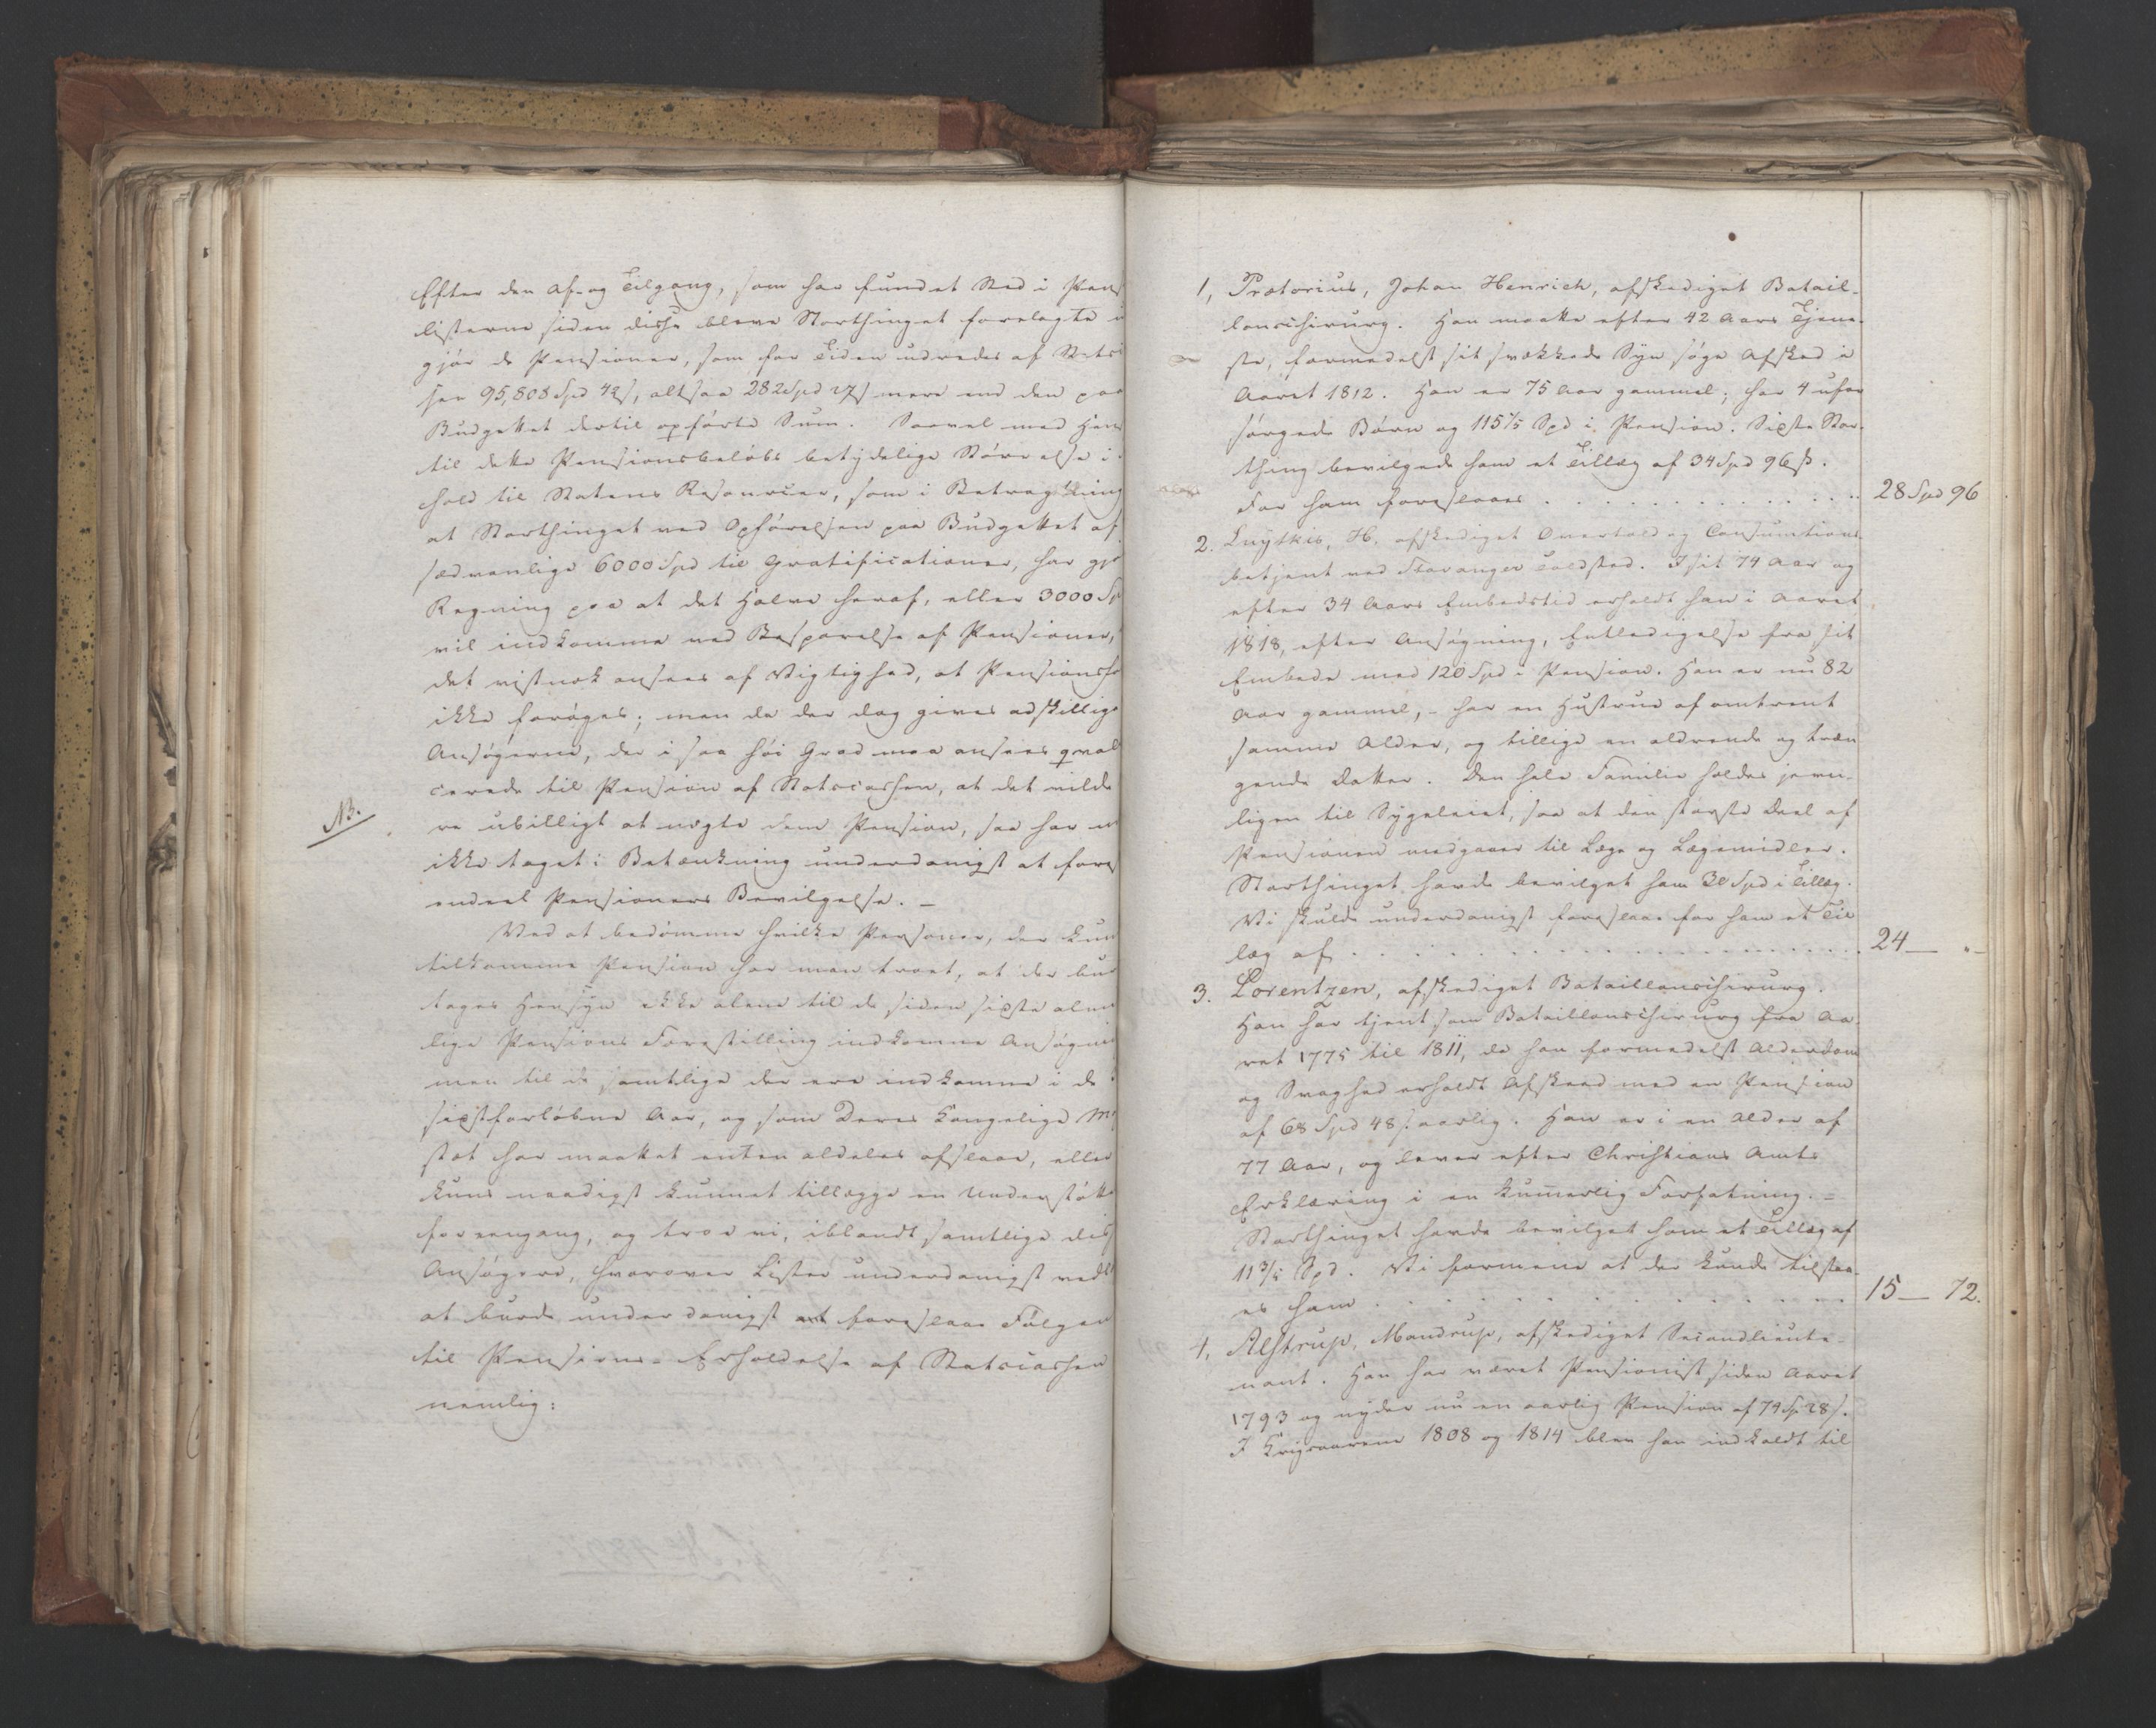 Efter den Af- og Tilgang, som har fundet Sted i Pens
listerne siden disse bleve Storthinget forelagte u
gjør de Pensioner, som for Tiden udredes af Stats
sen 95,808 Spd 42 s, altsaa 282 Spd 27 s mere end den paa
Budgettet dertil opførte Sum. Saavel med Hen
til dette Pensionsbeløbs betydelige Størrelse i
hold til Statens Resourcer, som i Betragtning
at Storthinget ved Opførelsen paa Budgettet af
sædvanlige 6000 Spd til Gratificationer, har gjo
Regning paa at det Halve heraf, eller 3000 Sp
vil indkomme ved Besparelse af Pensioner,
det vistnok ansees af Vigtighed, at Pensions
ikke forøges; men da der dog gives adskillige
Ansøgerne, der i saa høi Grad maa ansees qvali
cerede til Pension af Statscassen, at det vilde
NB.
re ubilligt at negte dem Pension, saa har v
ikke taget i Betænkning underdanigst at fore
endeel Pensioners Bevilgelse. –
Ved at bedømme hvilke Personer, der kun
tilkomme Pension har man troet, at der bur
tages Hensyn ikke alene til de siden sidste alm
lige Pensions Forestilling indkomne Ansøgni
men til de samtlige der ere indkomne i de
sidstforløbne Aar, og som Deres Kongelige M
stæt har maattet enten aldeles afslaae, eller
kuns naadigst kunnet tillægge en Understøtte
for eengang, og troe vi, iblandt samtlige dis
Ansøgere, hvorover Lister underdanigst vedl
at burde underdanigst at foreslaae Følgen
til Pensions-Erholdelse af Statscassen
nemlig:
1, Prætorius, Johan Henrich, afskediget Batail-
lonschirurg. Han maatte efter 42 Aars Tjene-
ste, formedelst sit svækkede Syn søge Afsked i
Aaret 1812. Han er 75 Aar gammel; har 4 ufor
sørgede Børn og 115 1/5 Spd i Pension. Sidste Stor-
thing bevilgede ham et Tillæg af 34 Spd 96 s.
For ham foreslaaes . . . . . . . . . . . . 28 Spd 96
2. Luytkis, H. afskediget Overtold og Consumtions-
betjent ved Stavanger Toldsted. I sit 74 Aar og
efter 34 Aars Embedstid erholdt han i Aaret
1818, efter Ansøgning, Entledigelse fra sit
Embede med 120 Spd i Pension. Han er nu 82
Aar gammel, – har en Hustrue af omtrent
samme Alder, og tillige en aldrende og træn
gende Datter. Den hele Familie holdes jevn-
ligen til Sygeleiet, saa at den største Deel af
Pensionen medgaaer til Læge og Lægemidler.
Storthinget havde bevilget ham 30 Spd i Tillæg.
Vi skulde underdanigst foreslaae for ham et Til
læg af . . . . . . . . . . . . . . . . 24 — " –
3. Lorentzen, afskediget Bataillonschirurg.
Han har tjent som Bataillonschirurg fra Aa-
ret 1775 til 1811, da han formedelst Alderdom
og Svaghed erholdt Afskeed med en Pension
af 68 Spd 48 s. aarlig. Han er i en Alder af
77 Aar, og lever efter Christians Amts
Erklæring i en kummerlig Forfatning. =
Storthinget havde bevilget ham et Tillæg af
11 3/5 Spd. Vi formene at der kunde tilstaa-
es ham . . . . . . . . . . . . . . . 15 — 72.
4, Alstrup, Mandrup, afskediget Secondlieute-
nant. Han har været Pensionist siden Aaret
1793 og nyder nu en aarlig Pension af 74 Sp 28 s.
I Krigsaarene 1808 og 1814 blev han indkaldt til